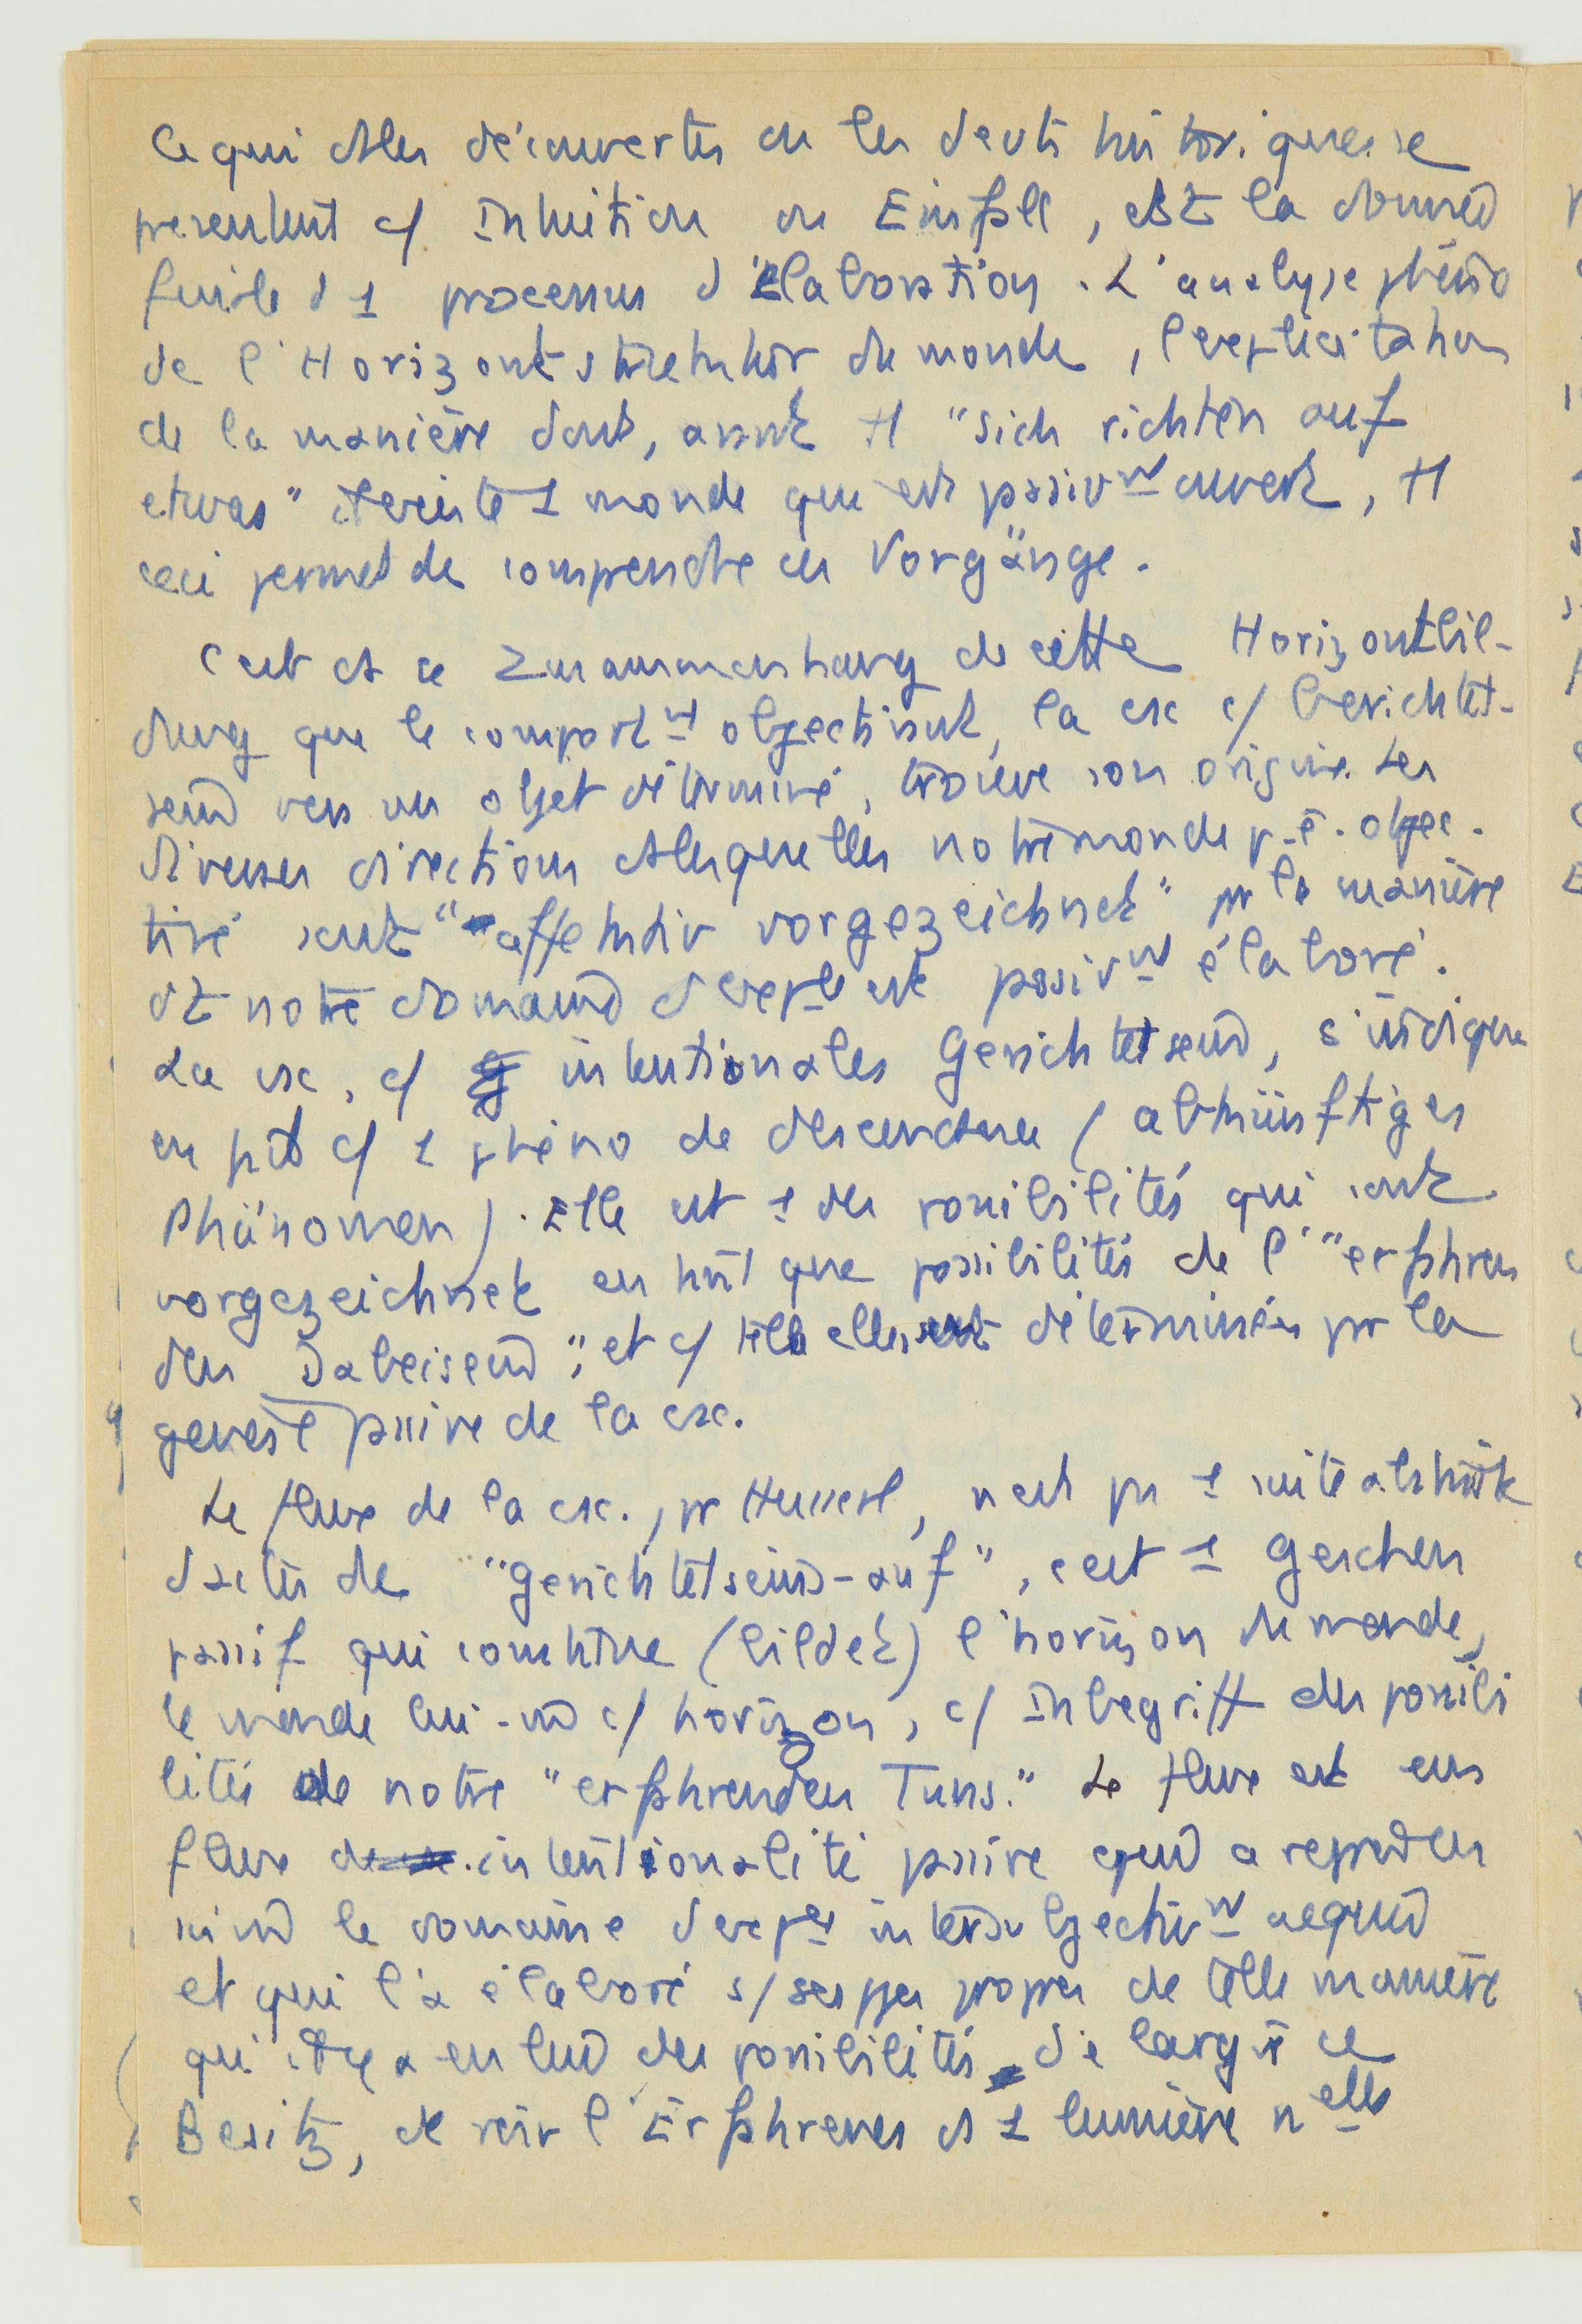 Ce qui ds les découvertes ou les devts historiques se
présentent c/ Intuition ou Einfall, est la donnée
finale d 1 processus d'élaboration. L'analyse phéno
de l'Horizontstruktur du monde, l'explicitation
de la manière dont, avant tt "sich richten auf
etwas" existe 1 monde qui est passivnt ouvert, tt
ceci permet de comprendre ces Vorgänge.
C'est ds ce Zusammenhang de cette Horizontbil-
dung que le comportnt objectivant, la csc c/ Gerichtet-
sein vers un objet déterminé, trouve son origine. Les
diverses directions ds lesquelles notre monde p. ê. objec-
tivé sont "affektiv vorgezeichnet" pr la manière
dt notre domaine d'expce est passivnt élaboré.
La csc, c/ intentionales Gerichtetsein, s'indique
en fait c/ 1 phéno de descendance (abkünftiges
Phänomen). Elle est 1 des possibilités qui sont
vorgezeichnet en tant que possibilités de l'"erfahren
den Dabeisein", et c/ telles elles sont déterminées pr la
genèse passive de la csc.
Le fleuve de la csc., pr Husserl, n'est pas 1 suite abstraite
d'actes de "gerichtetsein-auf", c'est 1 Geschehen
passif qui constitue (bildet) l'horizon du monde,
le monde lui-m c/ horizon, c/ Inbegriff des possibi
lités de notre "erfahrenden Tuns." Le fleuve est un
fleuve d'intentionalité passive qui a repris en
le domaine d'expce intersubjectivnt acquis
et qui l'a élaboré s/ ses propres de telle manière
qu'il y a en lui des possibilités d'élargir ce
Besitz, de voir l'Erfahrenes ds 1 lumière nelle